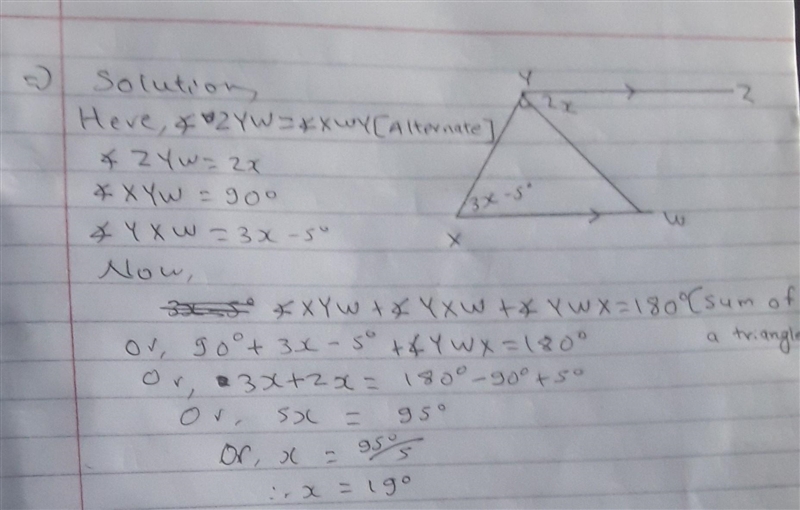 =) Solution,
Here, ∡ZYW = ∡XWY [Alternate]
∡ZYW = 2x
∡XYW = 90°
∡YXW = 3x - 5°
Now,
∡XYW + ∡YXW + ∡YWX = 180° (sum of
a triangle
Or, 90° + 3x - 5° + ∡YWX = 180°
Or, 3x + 2x = 180° - 90° + 5°
Or, 5x = 95°
Or, x = 95°/5
∴ x = 19°
Y
Z
2x
3x - 5°
X
W